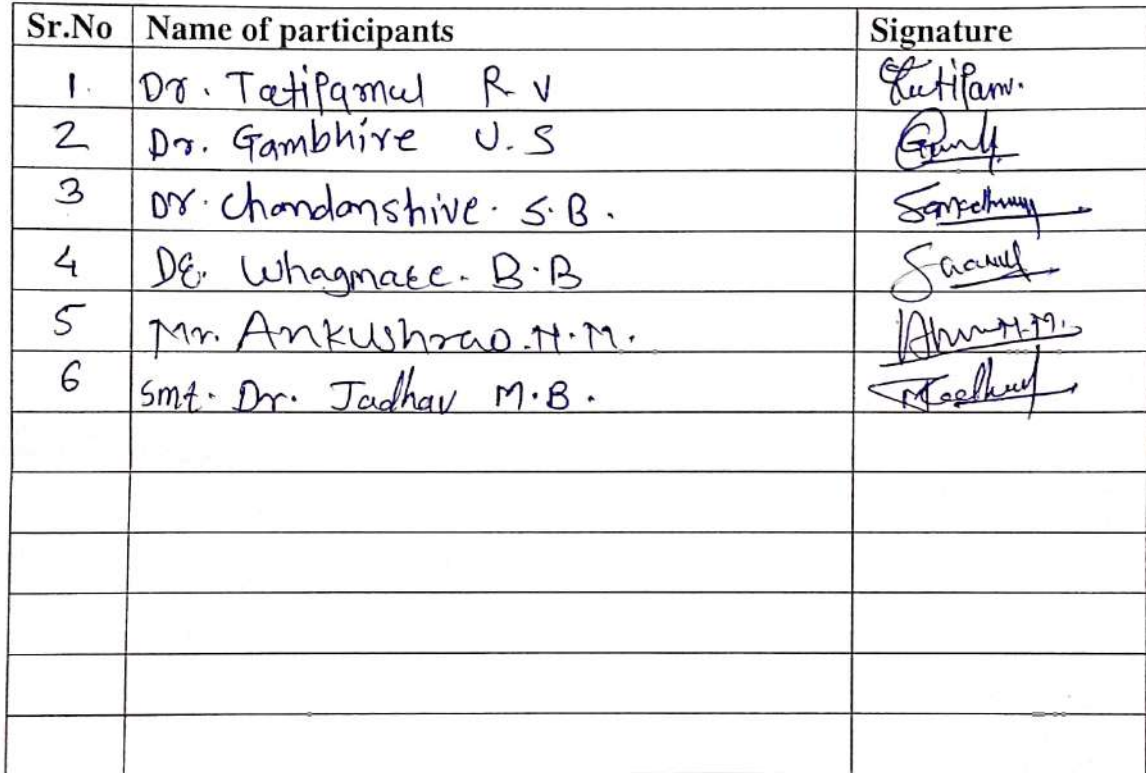 Sr.No Name of participants Signature
1. Dr. Tatipamul R V
2 Dr. Gambhire U.S
3 Dr. Chandanshive. S.B.
4 Dr. Whagmare. B.B
5 Mr. Ankushrao.N.M.
6 Smt. Dr. Jadhav M.B.